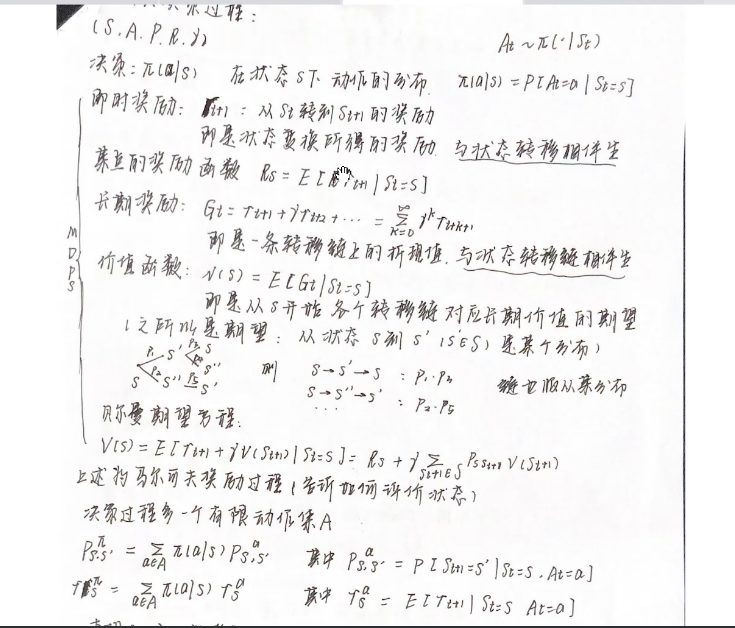 决策过程:
(S.A.P.R.γ)
At~π(·|St)
决策:π(a|s) 在状态S下 动作的分布. π(a|s)=P[At=a|St=s]
即时奖励: rt+1:从St转到St+1的奖励
即是状态变换所得的奖励. 与状态转移相伴生
某点的奖励函数 Rs=E[rt+1|St=s]
长期奖励: Gt=rt+1+γrt+2+...=∑k=0∞ γ^k rt+k+1
即是一条转移链上的折现值.与状态转移链相伴生
MDPS
价值函数: V(s)=E[Gt|St=s]
即是从S开始各个转移链对应长期价值的期望
(之所以是期望:从状态S到S'(S'∈S)是某个分布)
S P1 S' P3 S
P4 S''
P2 S'' P5 S'
则 S→S'→S :P1·P3
S→S''→S' :P2·P5
...
链也服从某分布
贝尔曼期望方程:
V(s)=E[rt+1+γV(St+1)|St=s]=Rs+γ∑St+1∈S PSSt+1 V(St+1)
上述为马尔可夫奖励过程(告诉如何评价状态)
决策过程多一个有限动作集A
P^π s,s'=∑a∈A π(a|s)P^a s,s' 其中 P^a s,s'=P[St+1=s'|St=s.At=a]
r^π s=∑a∈A π(a|s) r^a s 其中 r^a s=E[rt+1|St=s At=a]